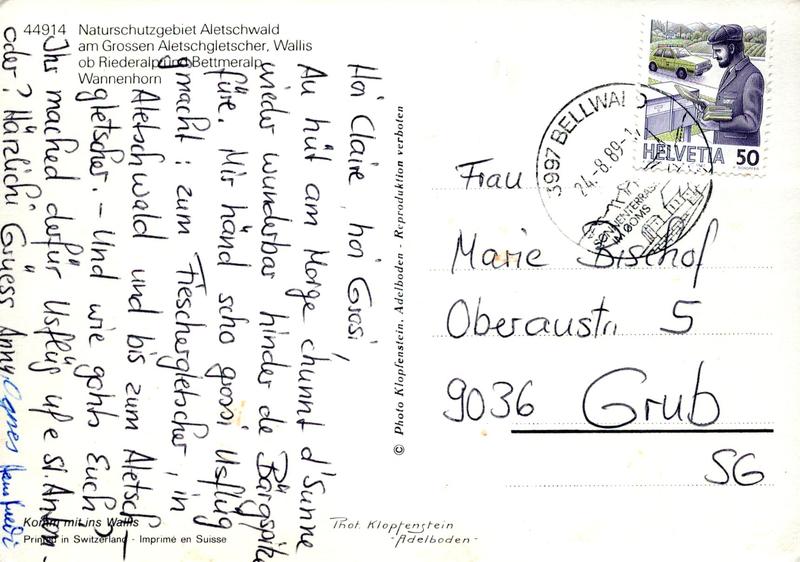 44914 Naturschutzgebiet Aletschwald
am Grossen Aletschgletscher, Wallis
ob Riederalp und Bettmeralp
Wannenhorn
Hoi Claire, hoi Grosi,
Au hüt am Morge chunnt d'Sunne
wieder wunderbar hinder de Bärgspitze
füre. Mir händ scho grossi Usflüg
gmacht: zum Fieschergletscher, in
Aletschwald und bis zum Aletsch-
gletscher. - Und wie gohts Euch?
Ihr mached defür Usflüg uf e St. Anton -
oder? Härzlichi Grüess Anny Agnes Hansruedi
Komm mit ins Wallis
Printed in Switzerland - Imprimé en Suisse
© Photo Klopfenstein, Adelboden - Reproduktion verboten
Phot. Klopfenstein
- Adelboden -
HELVETIA 50
3997 BELLWALD
24.-8.89-1
SONNENTERRASSE
IM GOMS
Frau
Marie Bischof
Oberaustr. 5
9036 Grub
SG